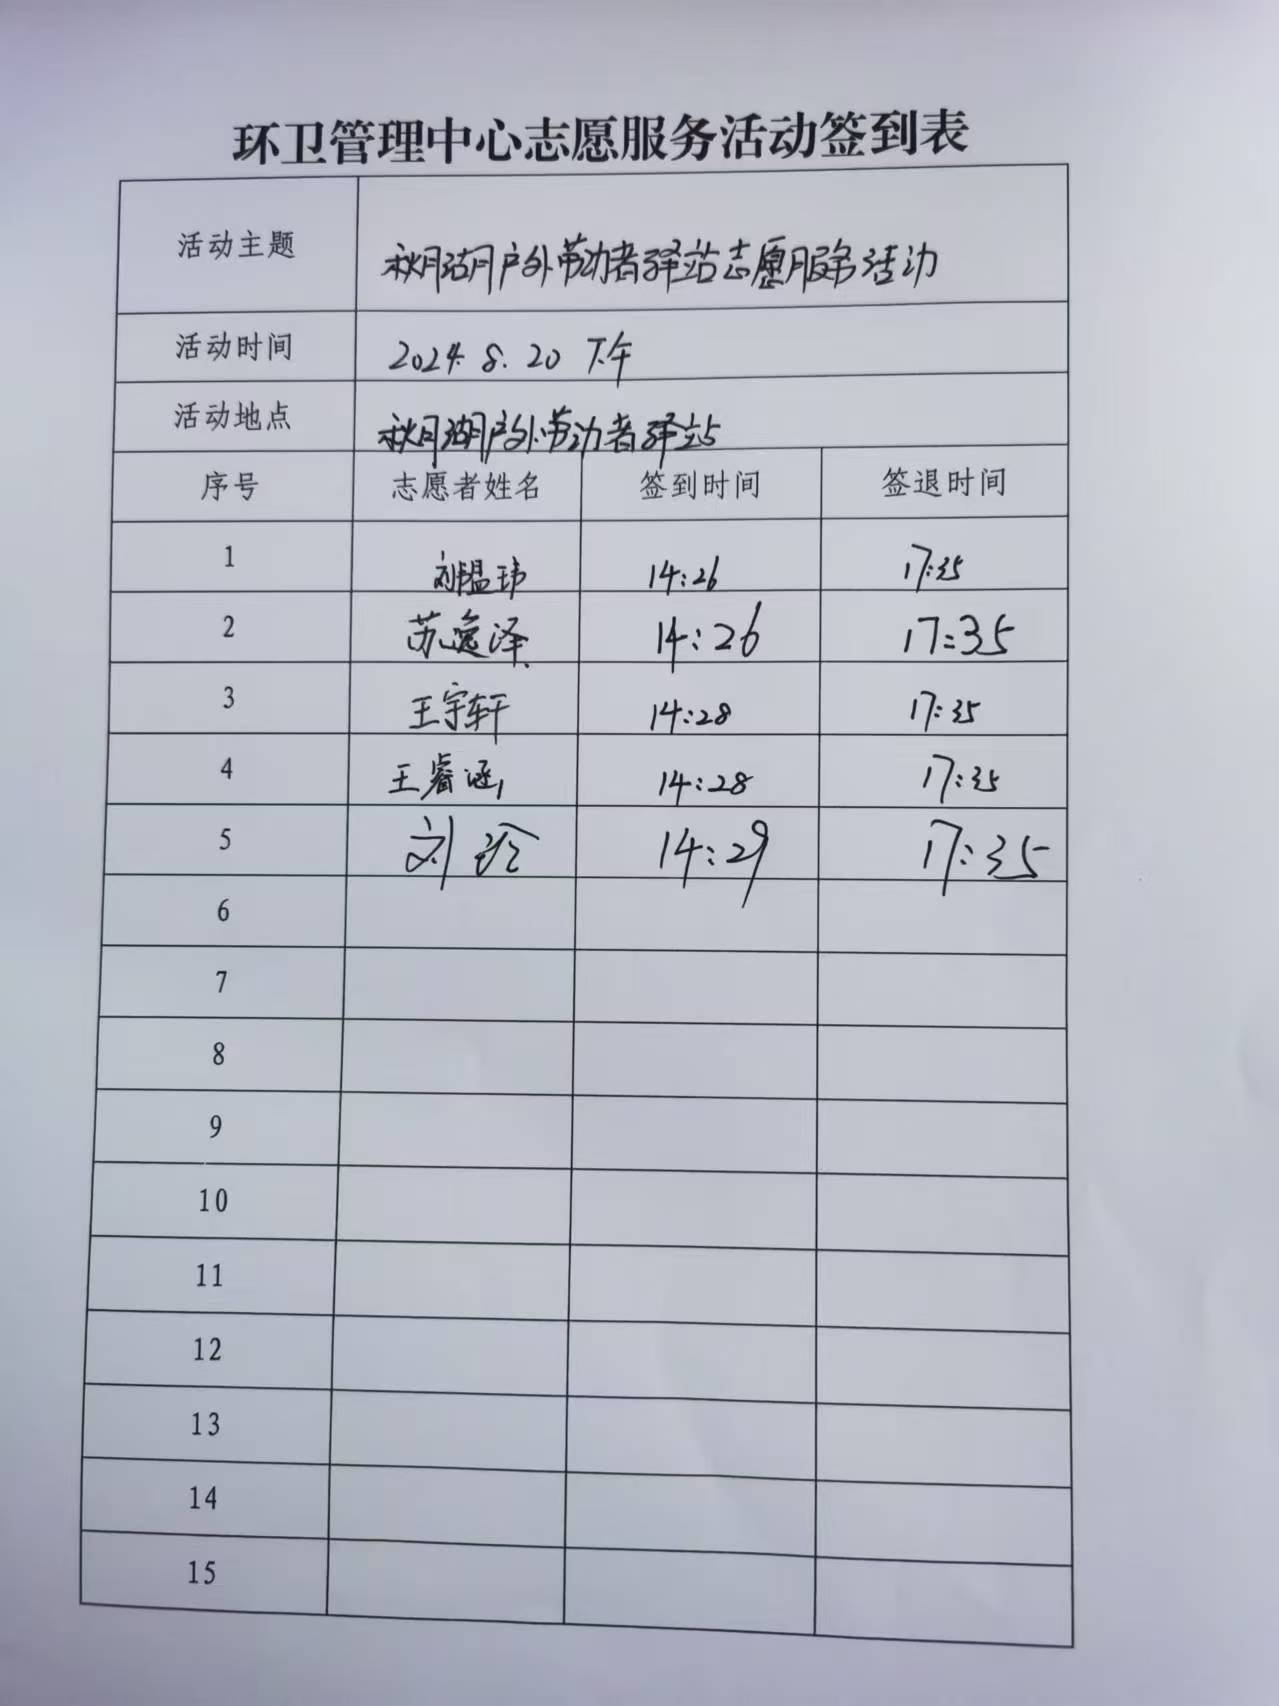 环卫管理中心志愿服务活动签到表
活动主题 秋月湖户外劳动者驿站志愿服务活动
活动时间 2024.8.20 下午
活动地点 秋月湖户外劳动者驿站
序号 志愿者姓名 签到时间 签退时间
1 刘韫玮 14:26 17:35
2 苏逸泽 14:26 17:35
3 王宇轩 14:28 17:35
4 王睿涵 14:28 17:35
5 刘 14:29 17:35
6
7
8
9
10
11
12
13
14
15